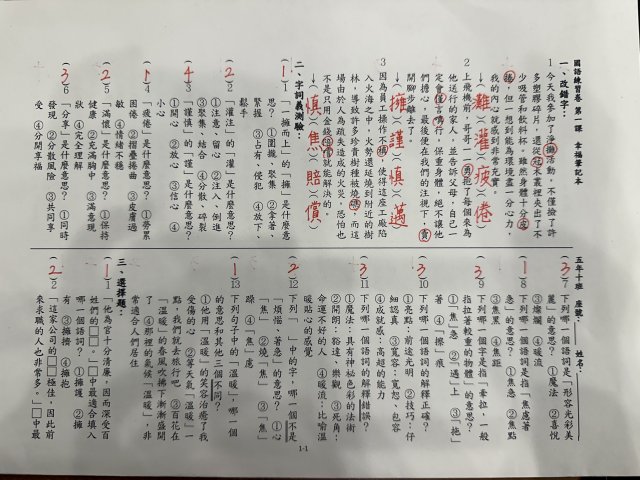 國語練習卷 第一課 幸福筆記本
五年十班 座號：
姓名：
一、改錯字：
1 今天我參加了淨攤活動，不僅撿了許
多塑膠碎片，還從
木叢裡夾出了不
少吸管和飲料杯。雖然身體十分皮
捲，但一想到能為環境盡一分心力，
我的內心就感到非常充實。
→（難）（灌）（疲）（倦）
2 上飛機前，哥哥一一勇抱了每個來為
他送行的家人，並告訴父母，自己一
定會僅言慎行，保重身體，絕不讓他
們擔心，最後便在我們的注視下，賣
開腳步離去了。
→（擁）（謹）（慎）（邁）
3 因為員工操作不
，使得這座工廠陷
入火海之中，火勢還延燒到附近的樹
林，導致許多珍貴樹種被燒
，而這
場由於人為疏失造成的火災，恐怕也
不是只用金錢
就能解決的。
→（慎）（焦）（賠）（償）
二、字詞義測驗：
（1）1「一擁而上」的「擁」是什麼意
思？ ①圍攏、聚集 ②拿著、
緊握 ③占有、侵犯 ④放下、
鬆手
（2）2「灌注」的「灌」是什麼意思？
①注意、留心 ②注入、倒進
③聚集、結合 ④分散、碎裂
（4）3「謹慎」的「謹」是什麼意思？
①開心 ②放心 ③信心 ④
小心
（1）4「疲倦」是什麼意思？ ①勞累
困倦 ②摺疊捲曲 ③皮膚過
敏 ④情緒不穩
（2）5「滿懷」是什麼意思？ ①保持
健康 ②充滿胸中 ③滿意現
狀 ④完全理解
（3）6「分享」是什麼意思？ ①同時
發現 ②分散風險 ③共同享
受 ④分開享福
（3）7 下列哪一個語詞是「形容光彩美
麗」的意思？ ①魔法 ②喜悅
③燦爛 ④暖流
（1）8 下列哪一個語詞是指「焦慮著
急」的意思？ ①焦急 ②焦點
③焦累 ④焦距
（3）9 下列哪一個字是指「牽拉，一般
指拉著較重的物體」的意思？
①「焦」急 ②「遇」上 ③「拖」
著 ④「擦」痕
（3）10 下列哪一個語詞的解釋正確？
①亮點：前途光明 ②技巧：仔
細認真 ③寬容：寬恕、包容
④成就感：高超的能力
（3）11 下列哪一個語詞的解釋錯誤？
①魔法：具有神祕色彩的法術
②開朗：豁達、樂觀 ③死角：
命運不好的人 ④暖流：比喻溫
暖貼心的感覺
（2）12 下列「 」中的字，哪一個不是
「煩惱、著急」的意思？ ①心
「焦」 ②燒「焦」 ③「焦」
躁 ④「焦」慮
（1）13 下列句子中的「溫暖」，哪一個
的意思和其他三個不同？
①他用「溫暖」的笑容治癒了我
受傷的心 ②等天氣「溫暖」一
點，我們就去旅行吧 ③百花在
「溫暖」的春風吹拂下漸漸盛開
了 ④那裡的氣候「溫暖」，非
常適合人們居住
三、選擇題：
（1）1「他為官十分清廉，因而深受百
姓們的□□。」□中最適合填入
哪一個語詞？ ①擁護 ②擁
有 ③擁擠 ④擁抱
（2）2「這家公司的□□極佳，因此前
來求職的人也非常多。」□中最
1-1